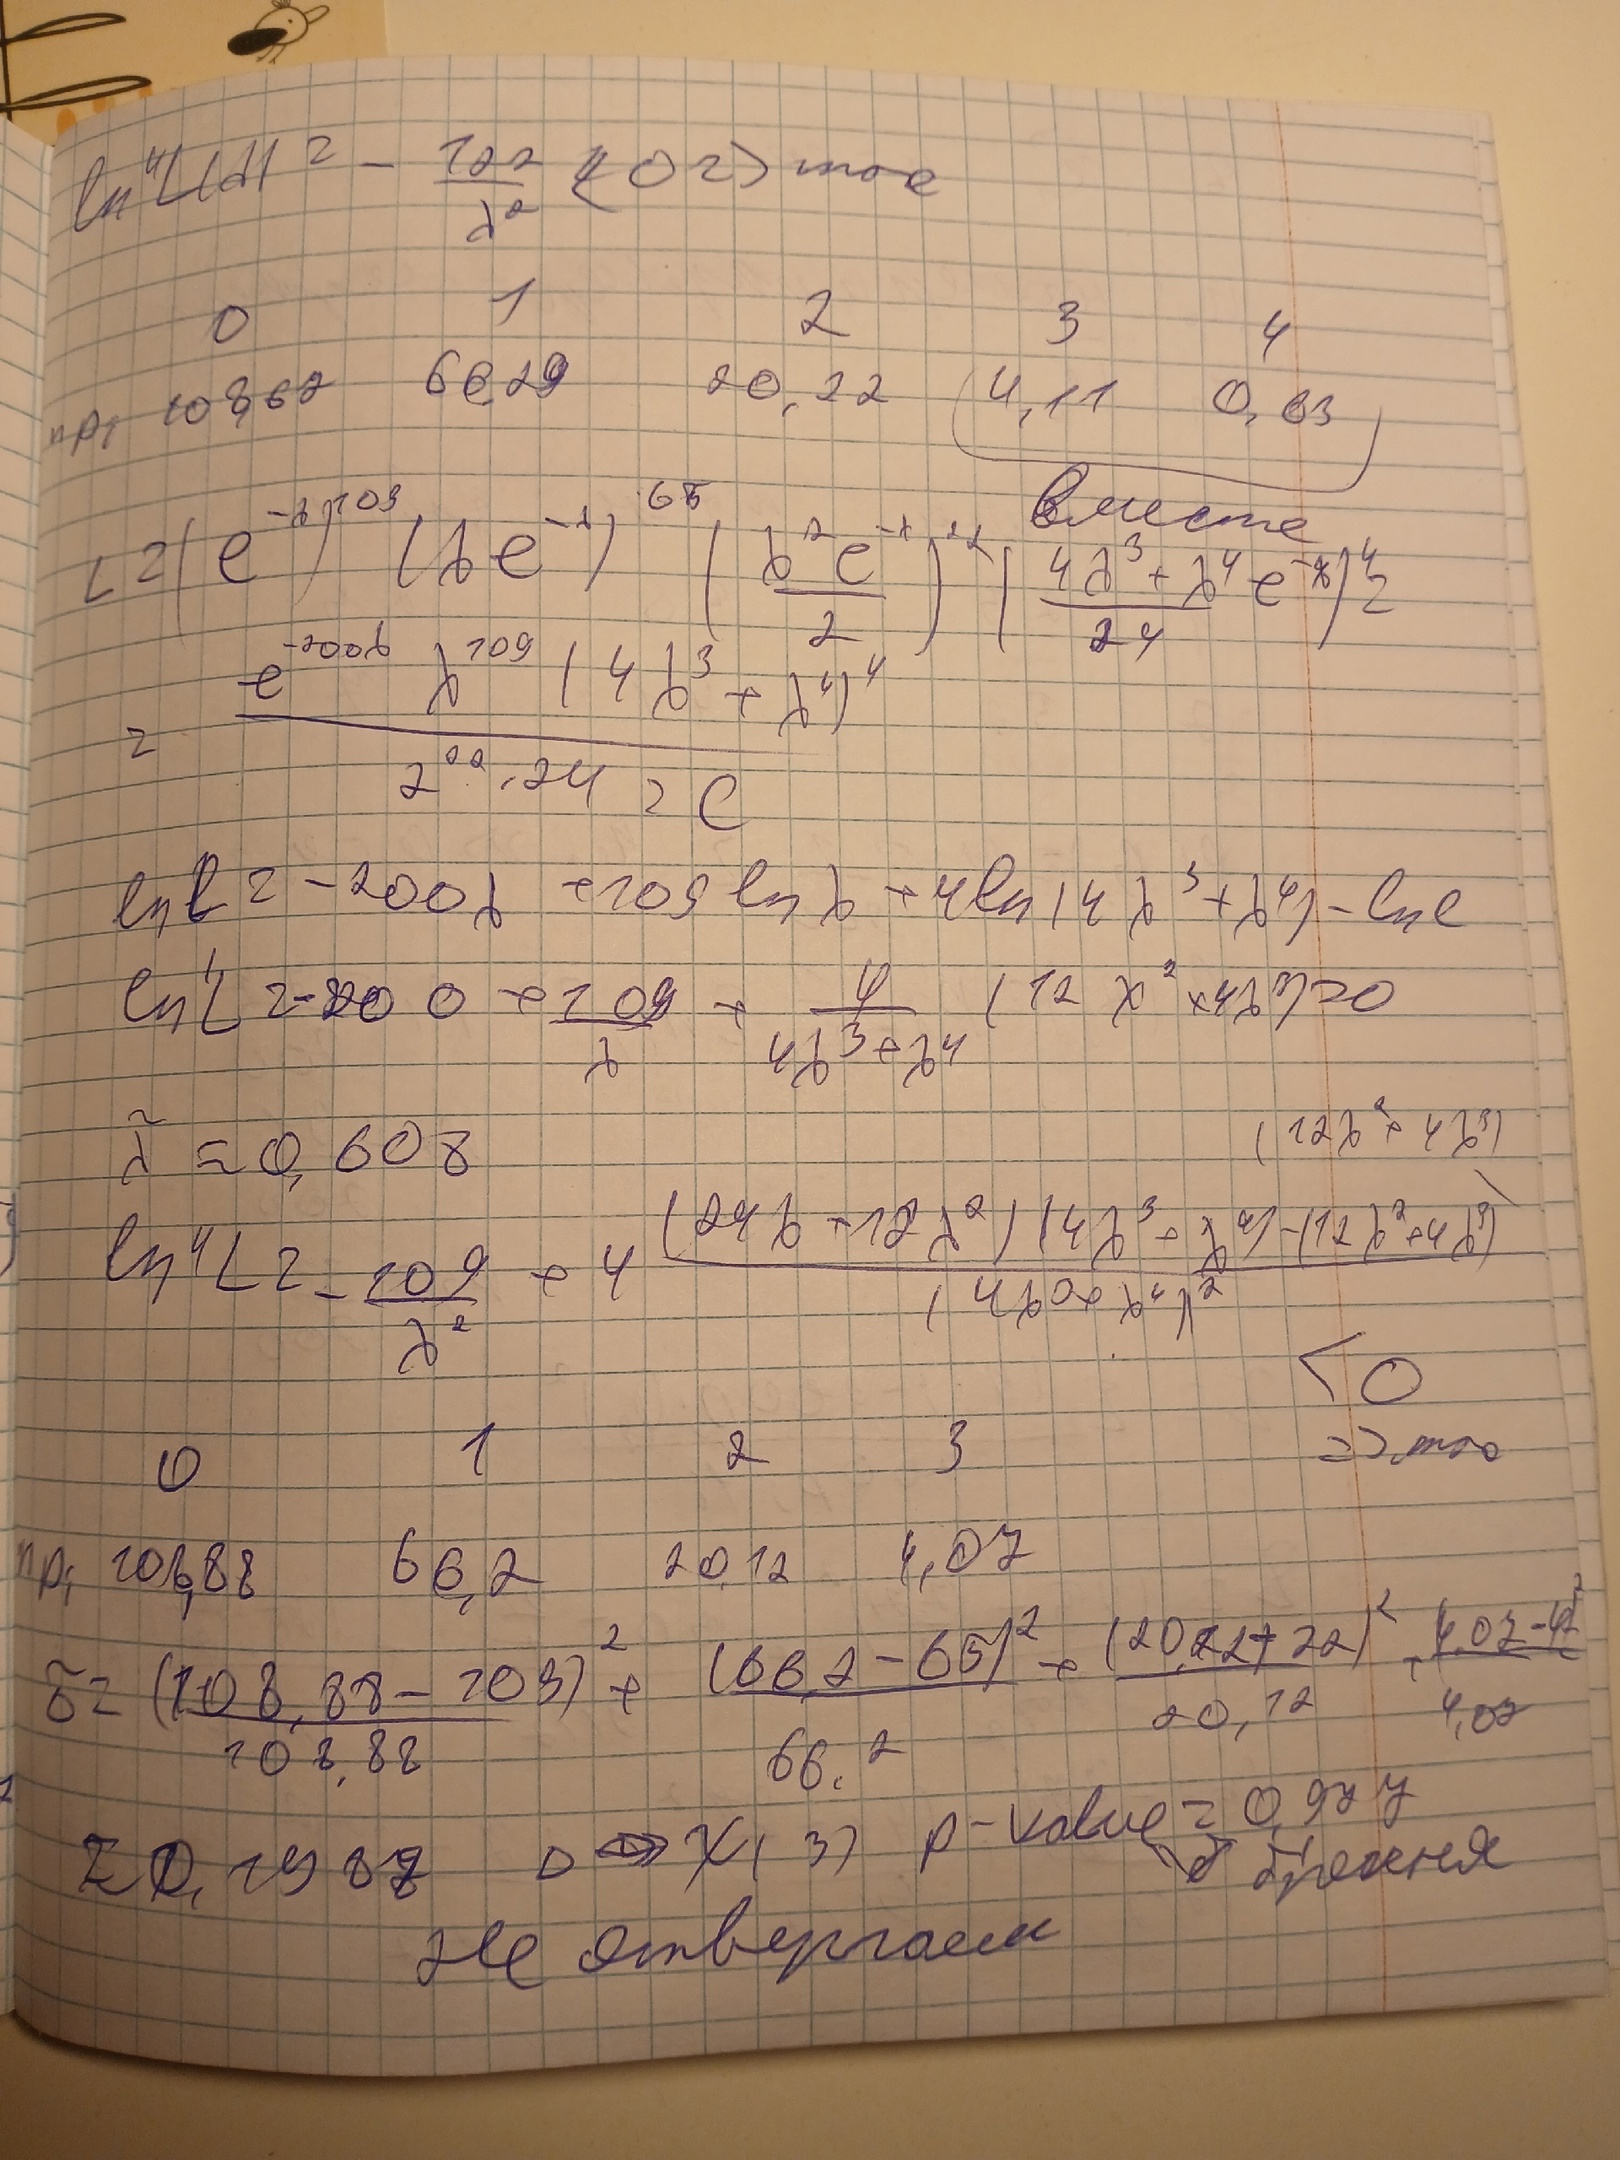 ln''L(λ) = - 122/λ² < 0 => max
0 1 2 3 4
np_i 108,67 66,29 20,22 (4,11 0,63)
вместе
L = (e^{-λ})^{109} (λe^{-λ})^{65} (λ²e^{-λ}/2)^{22} (4λ³+λ⁴/24 e^{-λ})⁴ =
= e^{-200λ} λ^{109} (4λ³+λ⁴)⁴ / 2^{22}·24 = C
ln L = -200λ + 109 ln λ + 4ln(4λ³+λ⁴) - ln C
ln'L = -200 + 109/λ + 4/(4λ³+λ⁴) (12λ²+4λ³) = 0
λ̃ ≈ 0,608
(12λ²+4λ³)
ln''L = - 109/λ² + 4 (24λ+12λ²)(4λ³+λ⁴)-(12λ²+4λ³) / (4λ³+λ⁴)²
< 0
=> max
0 1 2 3
np_i 108,88 66,2 20,12 4,07
δ̃ = (108,88-109)²/108,88 + (66,2-65)²/66,2 + (20,12+22)²/20,12 + (4,07-4)²/4,07
= 0,1987 χ(3) p-value = 0,977
Не отвергаем